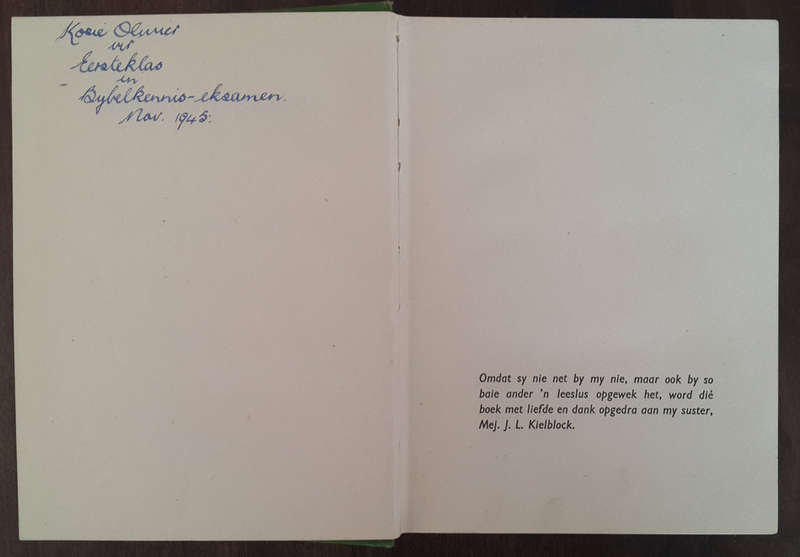 Kosie Olivier
vir
Eersteklas
in
Bybelkennis-eksamen.
Nov. 1945.
Omdat sy nie net by my nie, maar ook by so
baie ander 'n leeslus opgewek het, word dié
boek met liefde en dank opgedra aan my suster,
Mej. J. L. Kielblock.